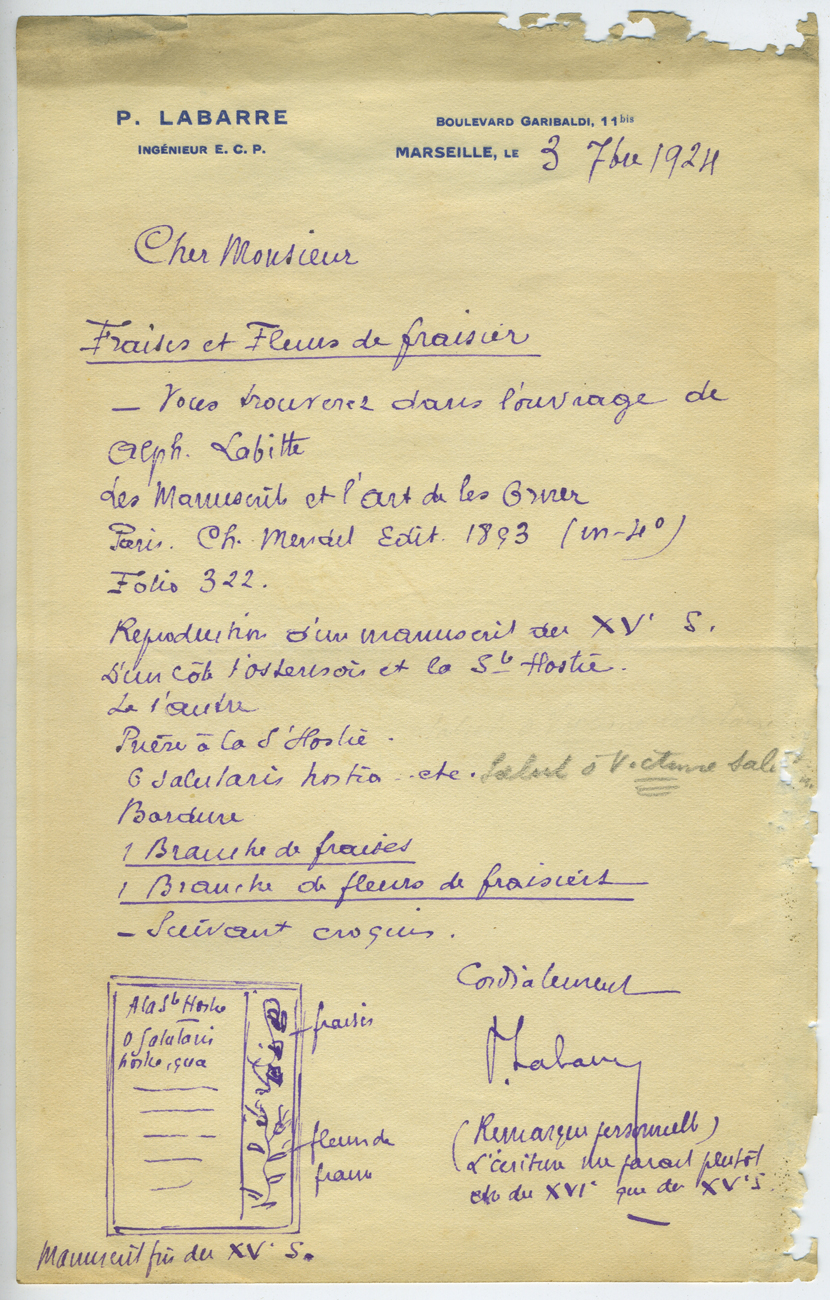 P. LABARRE
INGÉNIEUR E. C. P.
BOULEVARD GARIBALDI, 11bis
MARSEILLE, LE 3 7bre 1924
Cher Monsieur
Fraises et Fleurs de fraisier
— Vous trouverez dans l'ouvrage de
Alph. Labitte
Les Manuscrits et l'art de les Orner
Paris. Ch. Mendel Edit. 1893 (in-4°)
Folio 322.
Reproduction d'un manuscrit du XVe S.
D'un côté l'ostensoir et la Ste Hostie.
De l'autre
Prière à la S' Hostie.
O salutaris hostia ... etc. Salut ô Victime
Bordure
1 Branche de fraises
1 Branche de fleurs de fraisiers
— Suivant croquis.
Cordialement
P. Labarre
(Remarque personnelle)
L'écriture me parait plutôt
du XVIe que du XVe S.
A la Ste Hostie
O Salutaris
hostie, qua
fraises
fleurs de
Manuscrit fin du XVe S.